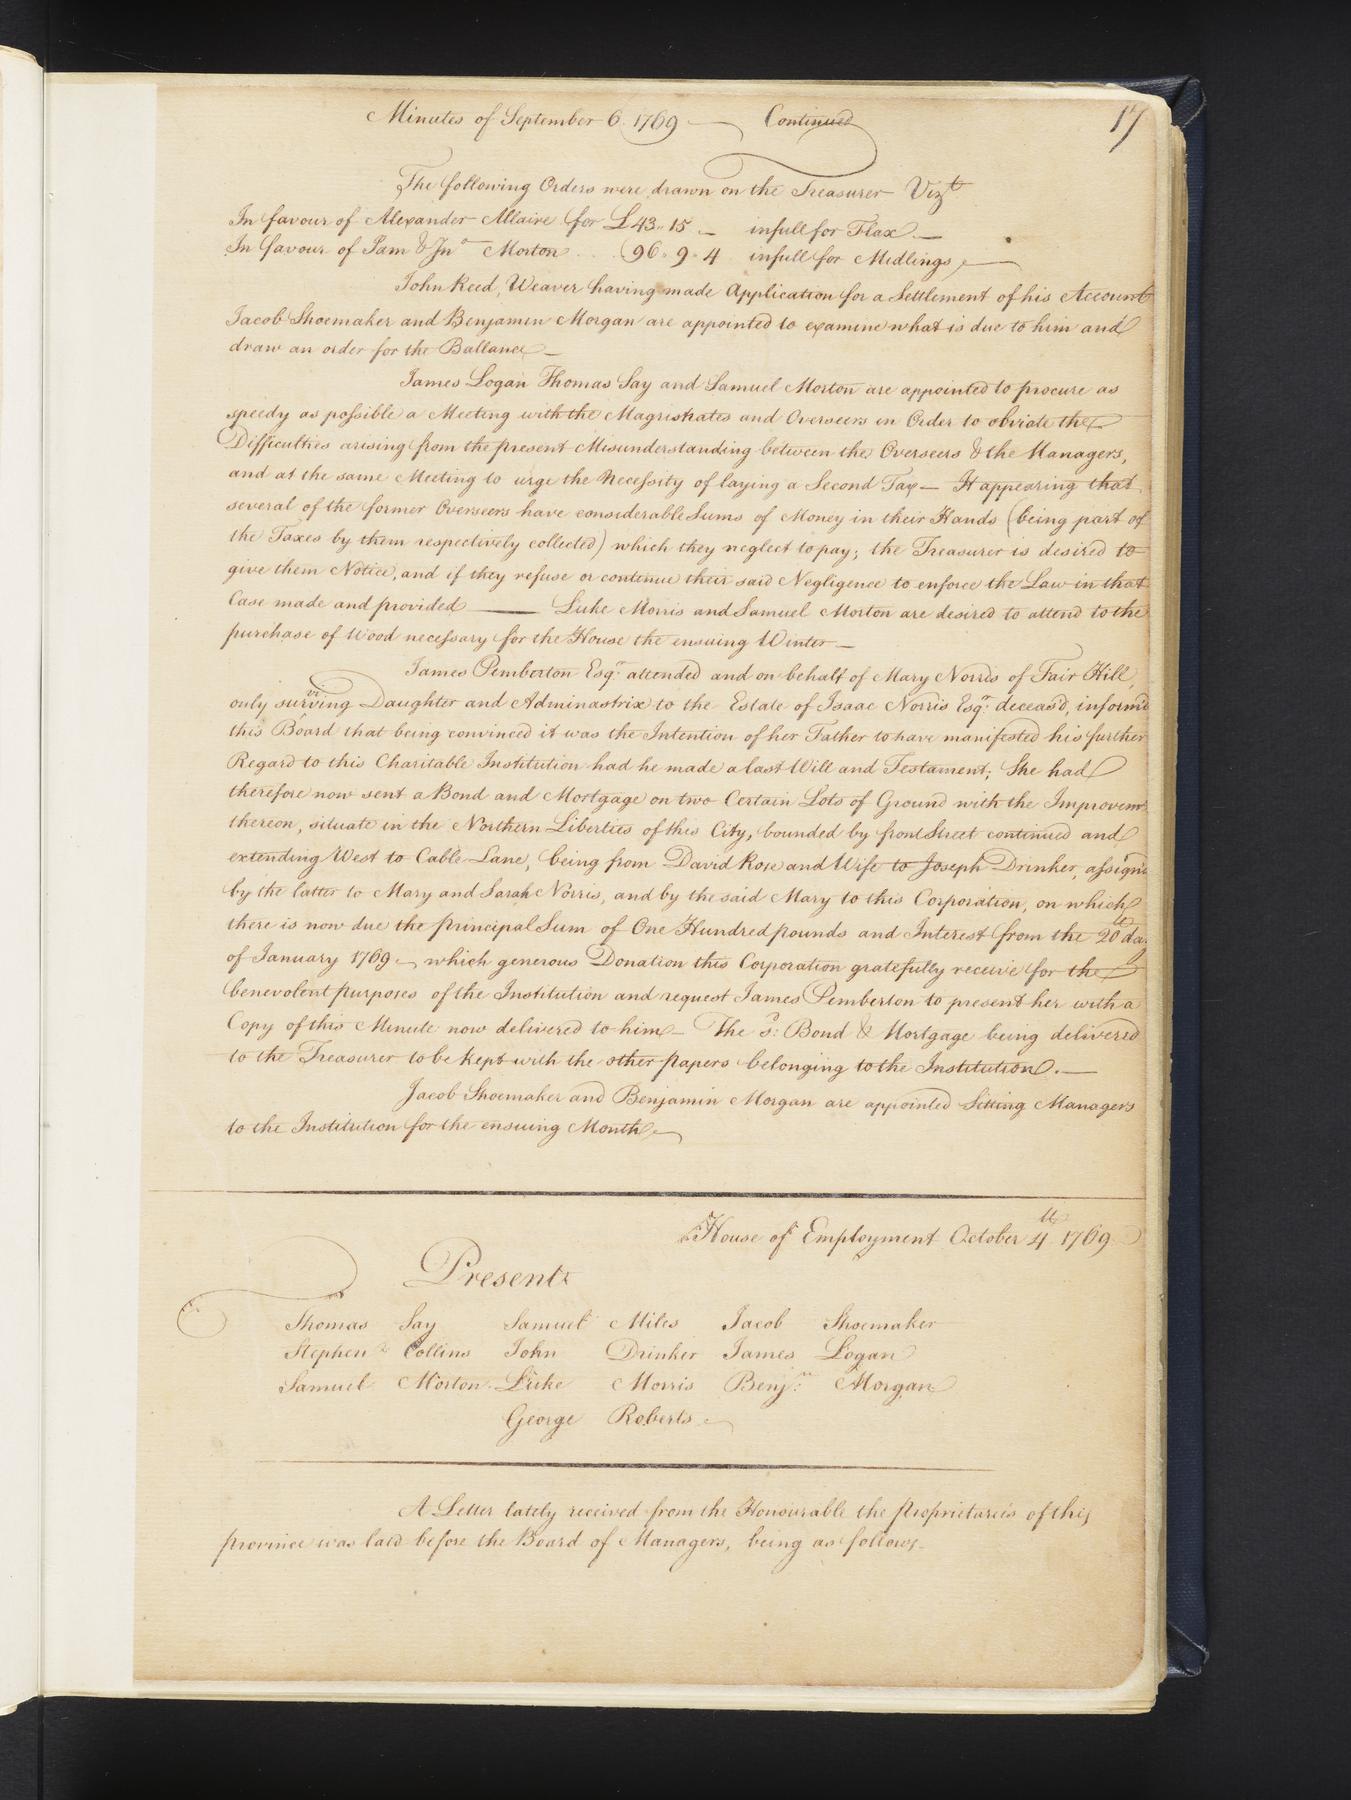 Minutes of September 6. 1769 — Continued
17
The following Orders were drawn on the Treasurer Vizt
In favour of Alexander Allaire for £43.. 15 — infull for Flax. —
In favour of Sam & Jno Morton . . . 96 .. 9 .. 4 infull for Midlings, —
John Reed, Weaver having made Application for a Settlement of his Account
Jacob Shoemaker and Benjamin Morgan are appointed to examine what is due to him and
draw an order for the Ballance —
James Logan Thomas Say and Samuel Morton are appointed to procure as
speedy as possible a Meeting with the Magristrates and Overseers in Order to obviate the
Difficulties arising from the present Misunderstanding between the Overseers & the Managers,
and at the same Meeting to urge the Necessity of laying a Second Tax — It appearing that
several of the former Overseers have considerable Sums of Money in their Hands (being part of
the Taxes by them respectively collected) which they neglect to pay; the Treasurer is desired to
give them Notice, and if they refuse or continue their said Negligence to enforce the Law in that
Case made and provided —— Luke Morris and Samuel Morton are desired to attend to the
purchase of Wood necessary for the House the ensuing Winter —
James Pemberton Esqr. attended and on behalf of Mary Norris of Fair Hill,
only surviving Daughter and Adminastrix to the Estate of Isaac Norris Esqr. deceas'd, inform'd
this Board that being convinced it was the Intention of her Father to have manifested his further
Regard to this Charitable Institution had he made a last Will and Testament; She had
therefore now sent a Bond and Mortgage on two Certain Lots of Ground with the Improvemts
thereon, situate in the Northern Liberties of this City, bounded by front Street continued and
extending West to Cable Lane, being from David Rose and Wife to Joseph Drinker, assign'd
by the latter to Mary and Sarah Norris, and by the said Mary to this Corporation, on which
there is now due the principal Sum of One Hundred pounds and Interest from the 20th day
of January 1769 — which generous Donation this Corporation gratefully receive for the
benevolent purposes of the Institution and request James Pemberton to present her with a
Copy of this Minute now delivered to him — The sd: Bond & Mortgage being delivered
to the Treasurer to be kept with the other papers belonging to the Institution. —
Jacob Shoemaker and Benjamin Morgan are appointed Sitting Managers
to the Institution for the ensuing Month —
House of Employment October 4th 1769
Present
Thomas Say Samuel Miles Jacob Shoemaker
Stephen Collins John Drinker James Logan
Samuel Morton Luke Morris Benjn: Morgan
George Roberts —
A Letter lately received from the Honourable the Proprietaries of this
province was laid before the Board of Managers, being as follows —